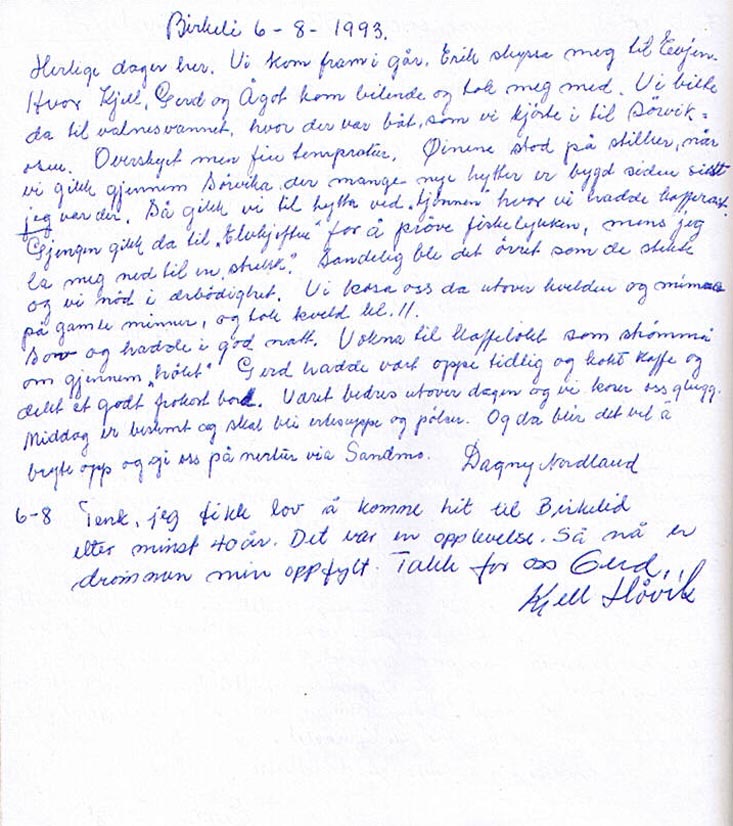 Birkeli 6-8-1993.
Herlige dager her. Vi kom fram i går. Erik skyssa meg til Evjen.
Hvor Kjell, Gerd og Ågot kom bilende og tok meg med. Vi bilte
da til valnesvannet, hvor der var båt, som vi kjørte i til Sörvik-
osen. Overskyet men fin tempratur. Öinene stod på stilker, når
vi gikk gjennem Sörvika der mange nye hytter er bygd siden sist
jeg var der. Så gikk vi til hytta ved "tjönnen" hvor vi hadde kafferast.
Gjengen gikk da til "Elvkjeften" for å pröve fiskelykken, mens jeg
la meg ned til en "strekk". Sandelig ble det örret som de stekte
og vi nöd i ærbödighet. Vi kosa oss da utover kvelden og mimra
på gamle minner, og tok kveld kl. 11.
Sov og hadde i god natt. Vokna til kaffelukt som strömma
om gjennem "hölet" Gerd hadde vært oppe tidlig og kokt kaffe og
dekt et godt frokost bord. Været bedres utover dagen og vi koser oss glugg.
Middag er bestemt og skal bli ertesuppe og pölser. Og da blir det vel å
bryte opp og gi oss på nertur via Sandmo. Dagny Nordland
6-8 Tenk, jeg fikk lov å komme hit til Birkelid
etter minst 40 år. Det var en opplevelse. Så nå er
drömmen min oppfylt. Takk for oss Gerd,
Kjell Håvik